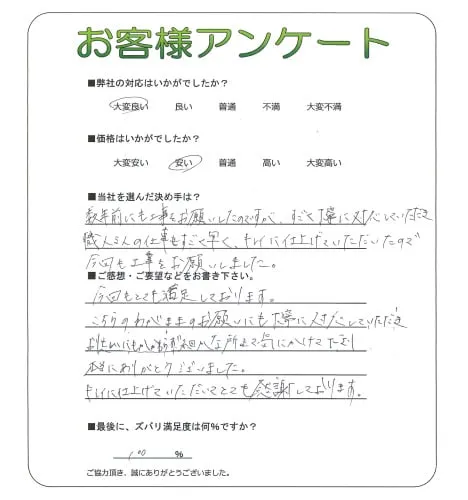 お客様アンケート
■弊社の対応はいかがでしたか?
大変良い 良い 普通 不満 大変不満
■価格はいかがでしたか?
大変安い 安い 普通 高い 大変高い
■当社を選んだ決め手は?
数年前にも工事をお願いしたのですが、すごく丁寧に対応していただき
職人さんの仕事もすごく早く、キレイに仕上げていただいたので
今回も工事をお願いしました。
■ご感想・ご要望などをお書き下さい。
今回もとても満足しております。
こちらのわがままのお願いにも丁寧に対応していただき
細かな所まで気にかけて下さり
本当にありがとうございました。
キレイに仕上げていただいてとても感謝しております。
■最後に、ズバリ満足度は何%ですか?
100 %
ご協力頂き、誠にありがとうございました。